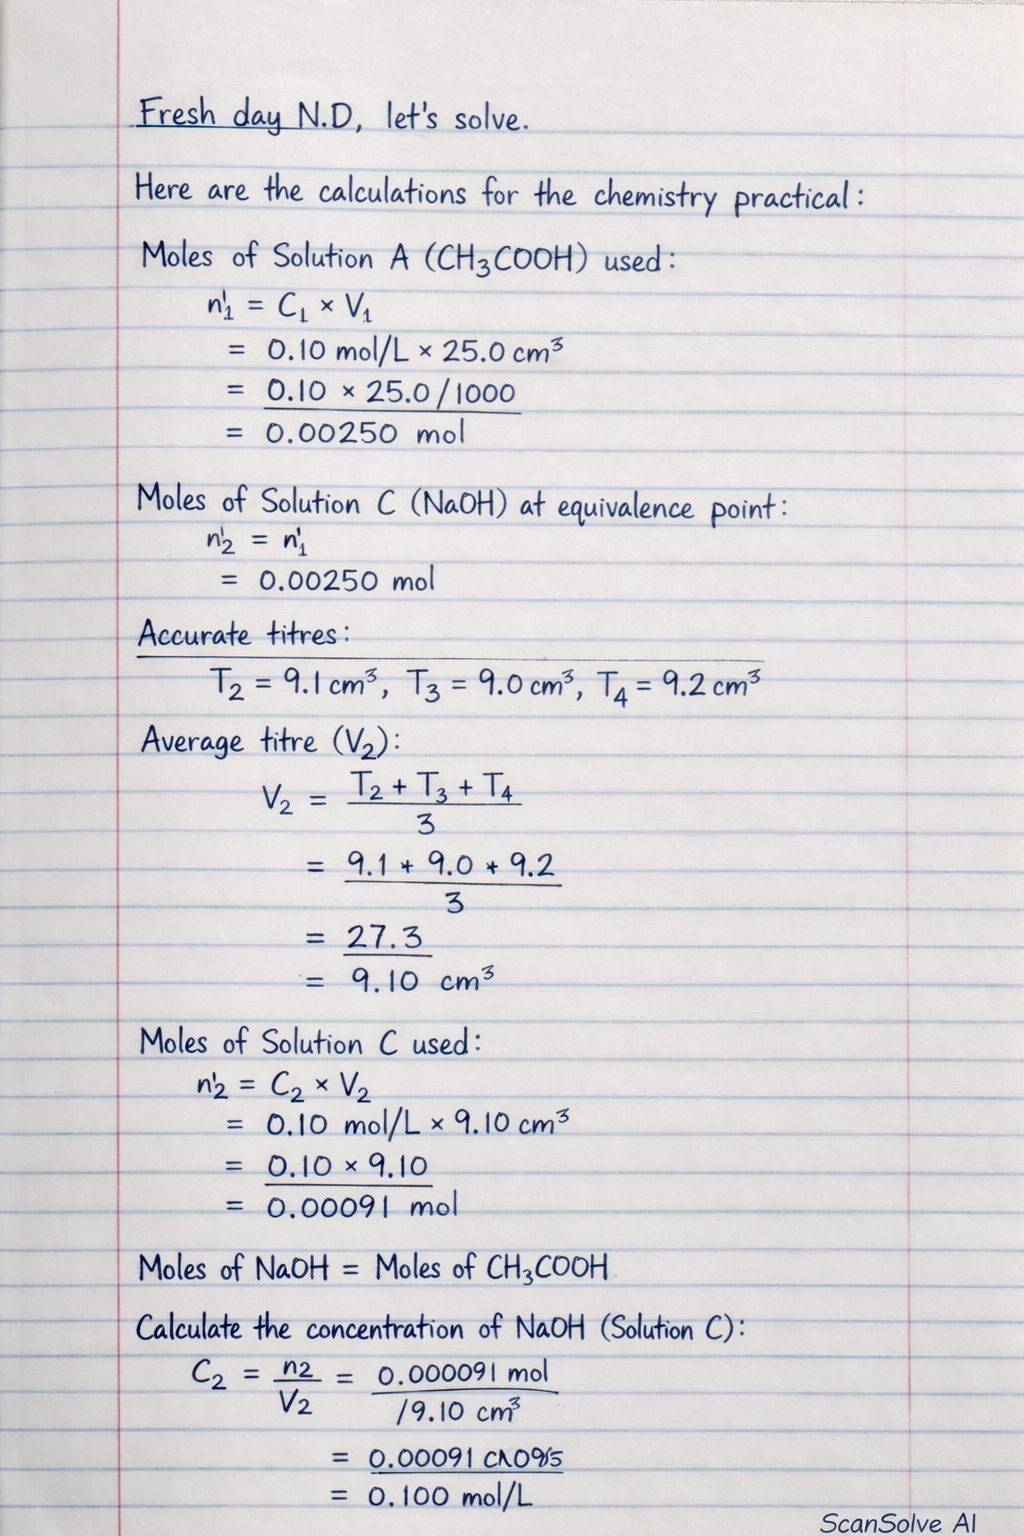 Fresh day N.D, let's solve.
Here are the calculations for the chemistry practical:
Moles of Solution A (CH₃COOH) used:
n'₁ = C₁ × V₁
= 0.10 mol/L × 25.0 cm³
= 0.10 × 25.0/1000
= 0.00250 mol
Moles of Solution C (NaOH) at equivalence point:
n'₂ = n'₁
= 0.00250 mol
Accurate titres:
T₂ = 9.1 cm³, T₃ = 9.0 cm³, T₄ = 9.2 cm³
Average titre (V₂):
V₂ = T₂ + T₃ + T₄
3
= 9.1 + 9.0 + 9.2
3
= 27.3
= 9.10 cm³
Moles of Solution C used:
n'₂ = C₂ × V₂
= 0.10 mol/L × 9.10 cm³
= 0.10 × 9.10
= 0.00091 mol
Moles of NaOH = Moles of CH₃COOH
Calculate the concentration of NaOH (Solution C):
C₂ = n2 = 0.000091 mol
V2 /9.10 cm³
= 0.00091
= 0.100 mol/L
ScanSolve AI